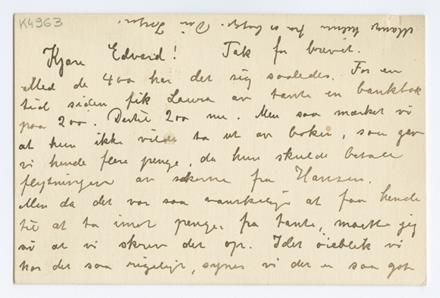 K4963
Kjære Edvard! Tak for brevet.
Med de 400 har det sig saaledes. For en
tid siden fik Laura av tante en bankbok
paa 200. Dertil 200 nu. Men saa mærket vi
at hun ikke vilde ta ut av boken, saa gav
vi hende flere penge, da hun skulde betale
flytningen av sakerne fra Hansen.
Men da det var saa vanskeligt at faa hende
til at ta imot penge fra tante, maatte jeg
si at vi skrev det op. I det øieblik vi
har det saa rigeligt, synes vi det er saa godt